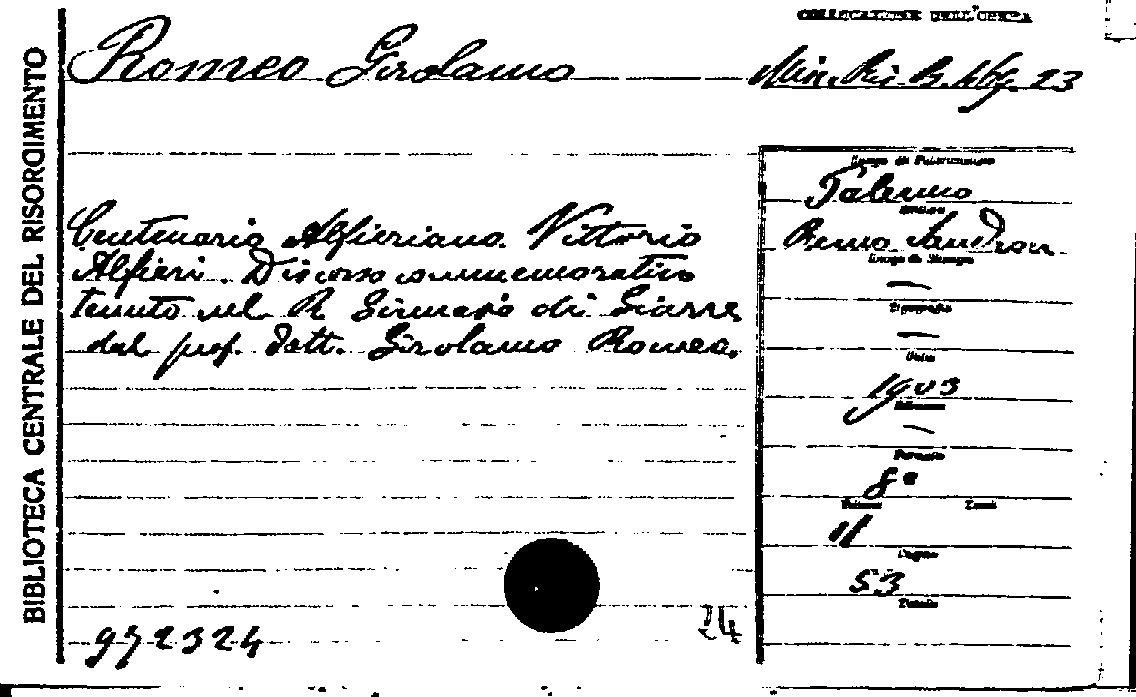 BIBLIOTECA CENTRALE DEL RISORGIMENTO
COLLOCAZIONE DELL'OPERA
Romeo Girolamo
Centenario Alfieriano. Vittorio
Alfieri. Discorso commemorativo
tenuto nel R. Ginnasio di Giarre
dal prof. dott. Girolamo Romeo.
972324
24
Luogo di Pubblicazione
Palermo
Editore
Remo Sandron
Luogo di Stampa
—
Tipografia
—
Data
1903
Edizione
—
Formato
8°
Volumi Tomi
11
Pagine
53
Tavole